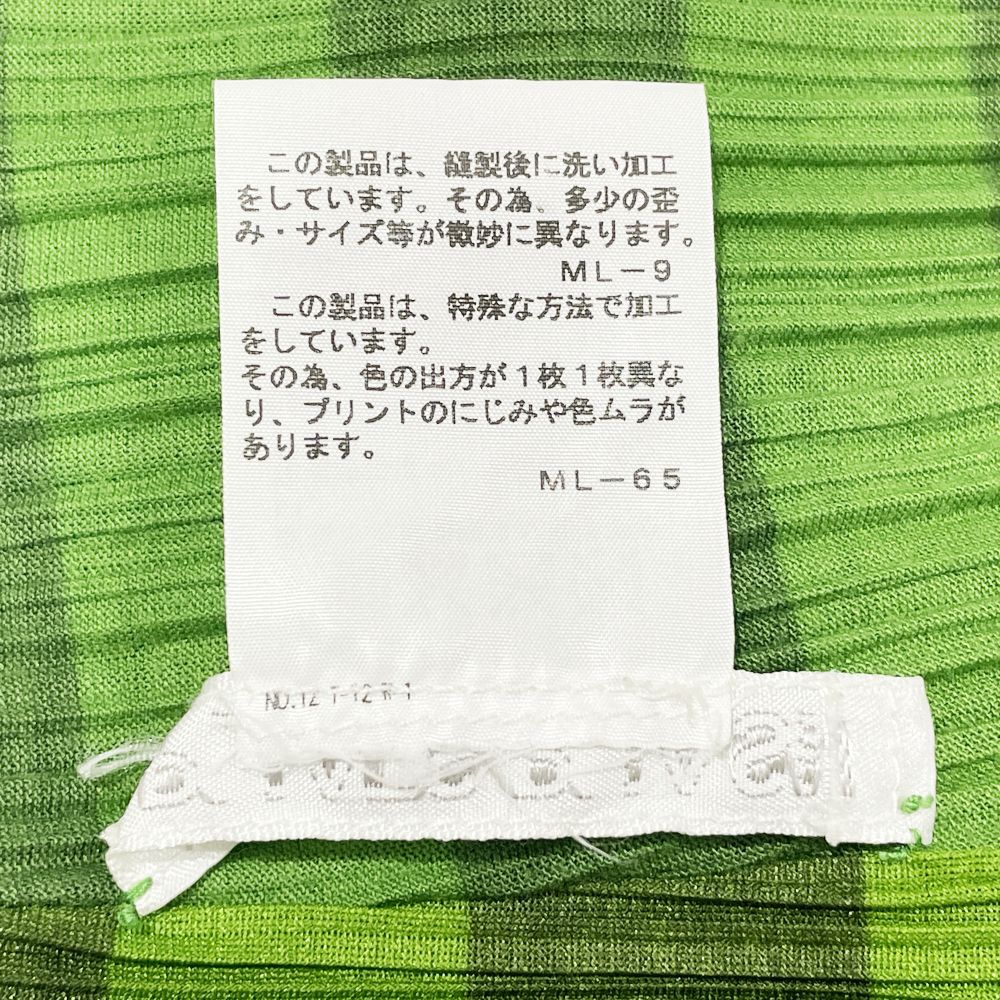 この製品は、縫製後に洗い加工
をしています。その為、多少の歪
み・サイズ等が微妙に異なります。
ML－9
この製品は、特殊な方法で加工
をしています。
その為、色の出方が１枚１枚異な
り、プリントのにじみや色ムラが
あります。
ML－65
NO.12